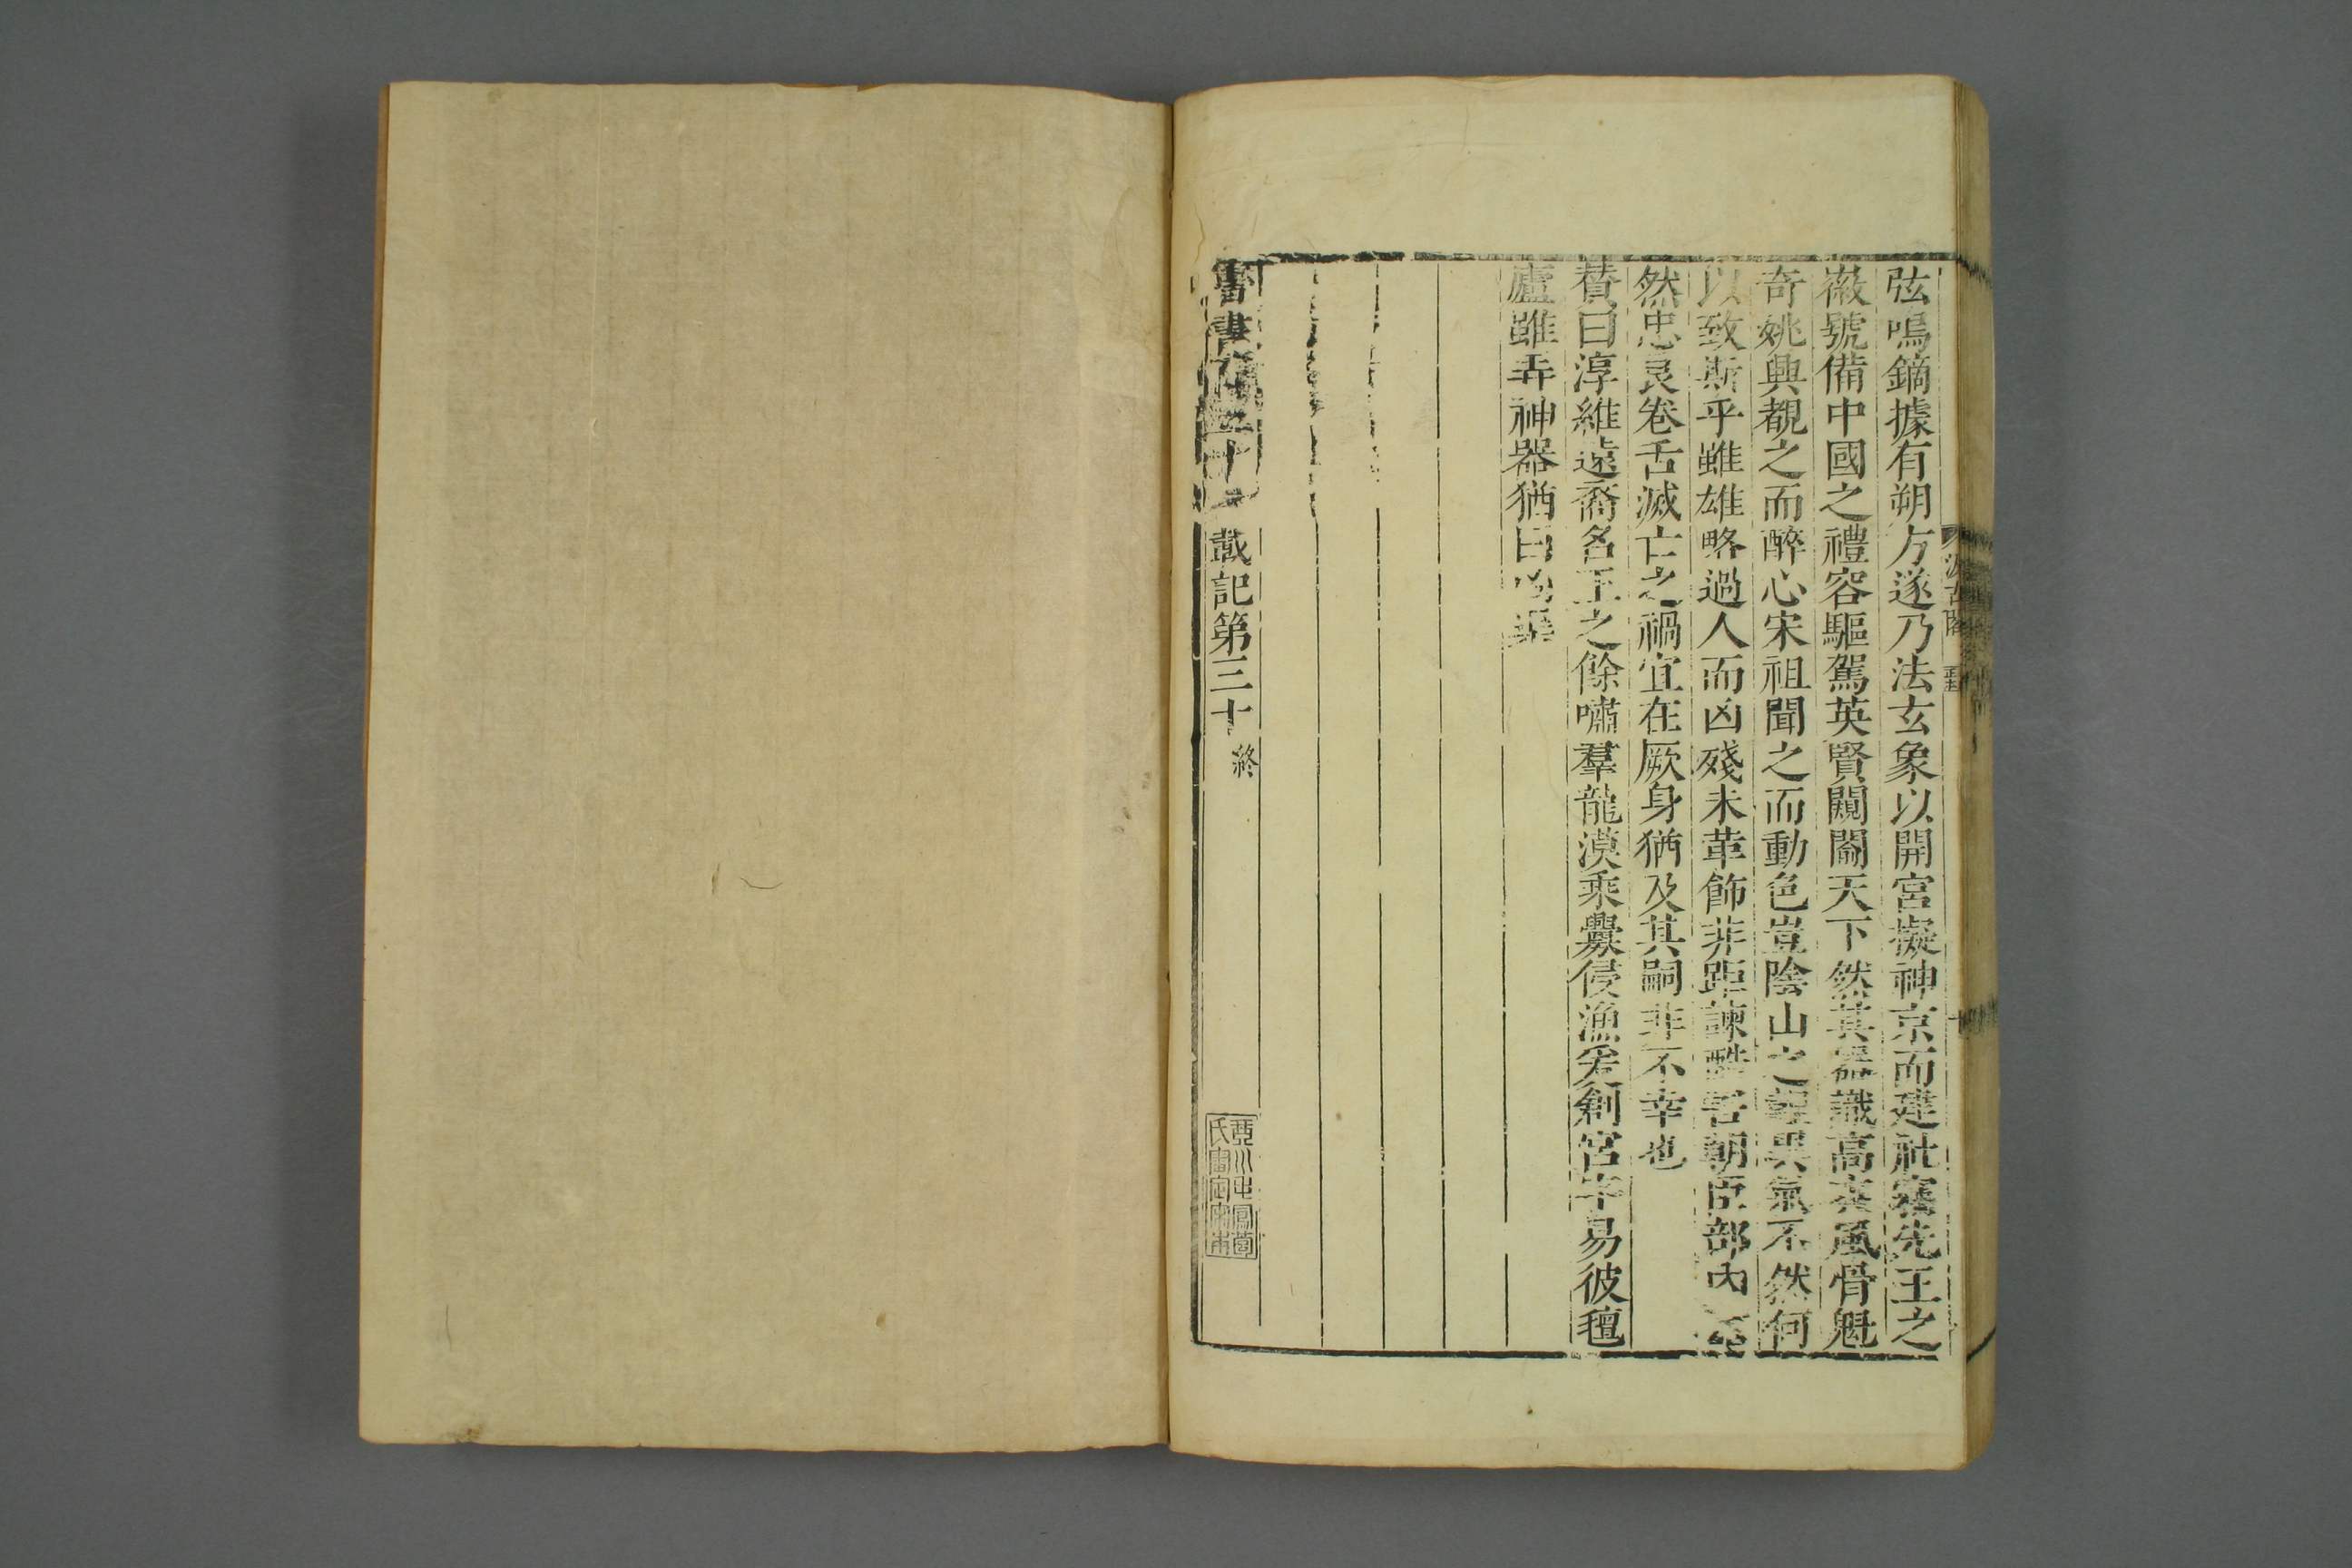 弦鳴鏑據有朔方遂乃法玄象以開宮擬神京而建社竊先王之
徽號備中國之禮容驅駕英賢闚闟天下然其器識高爽風骨魁
奇姚興覩之而醉心宋祖聞之而動色豈陰山之韞異氣不然何
以致斯乎雖雄略過人而凶殘未革飾非距諫酷害朝臣部內囂
然忠良卷舌滅亡之禍宜在厥身猶及其嗣非不幸也
贊曰淳維遠裔名王之餘嘯羣龍漠乘釁侵漁爰創宮宇易彼氊
廬雖弄神器猶曰凶渠
晉書 三十 載記第三十 終
汲古閣